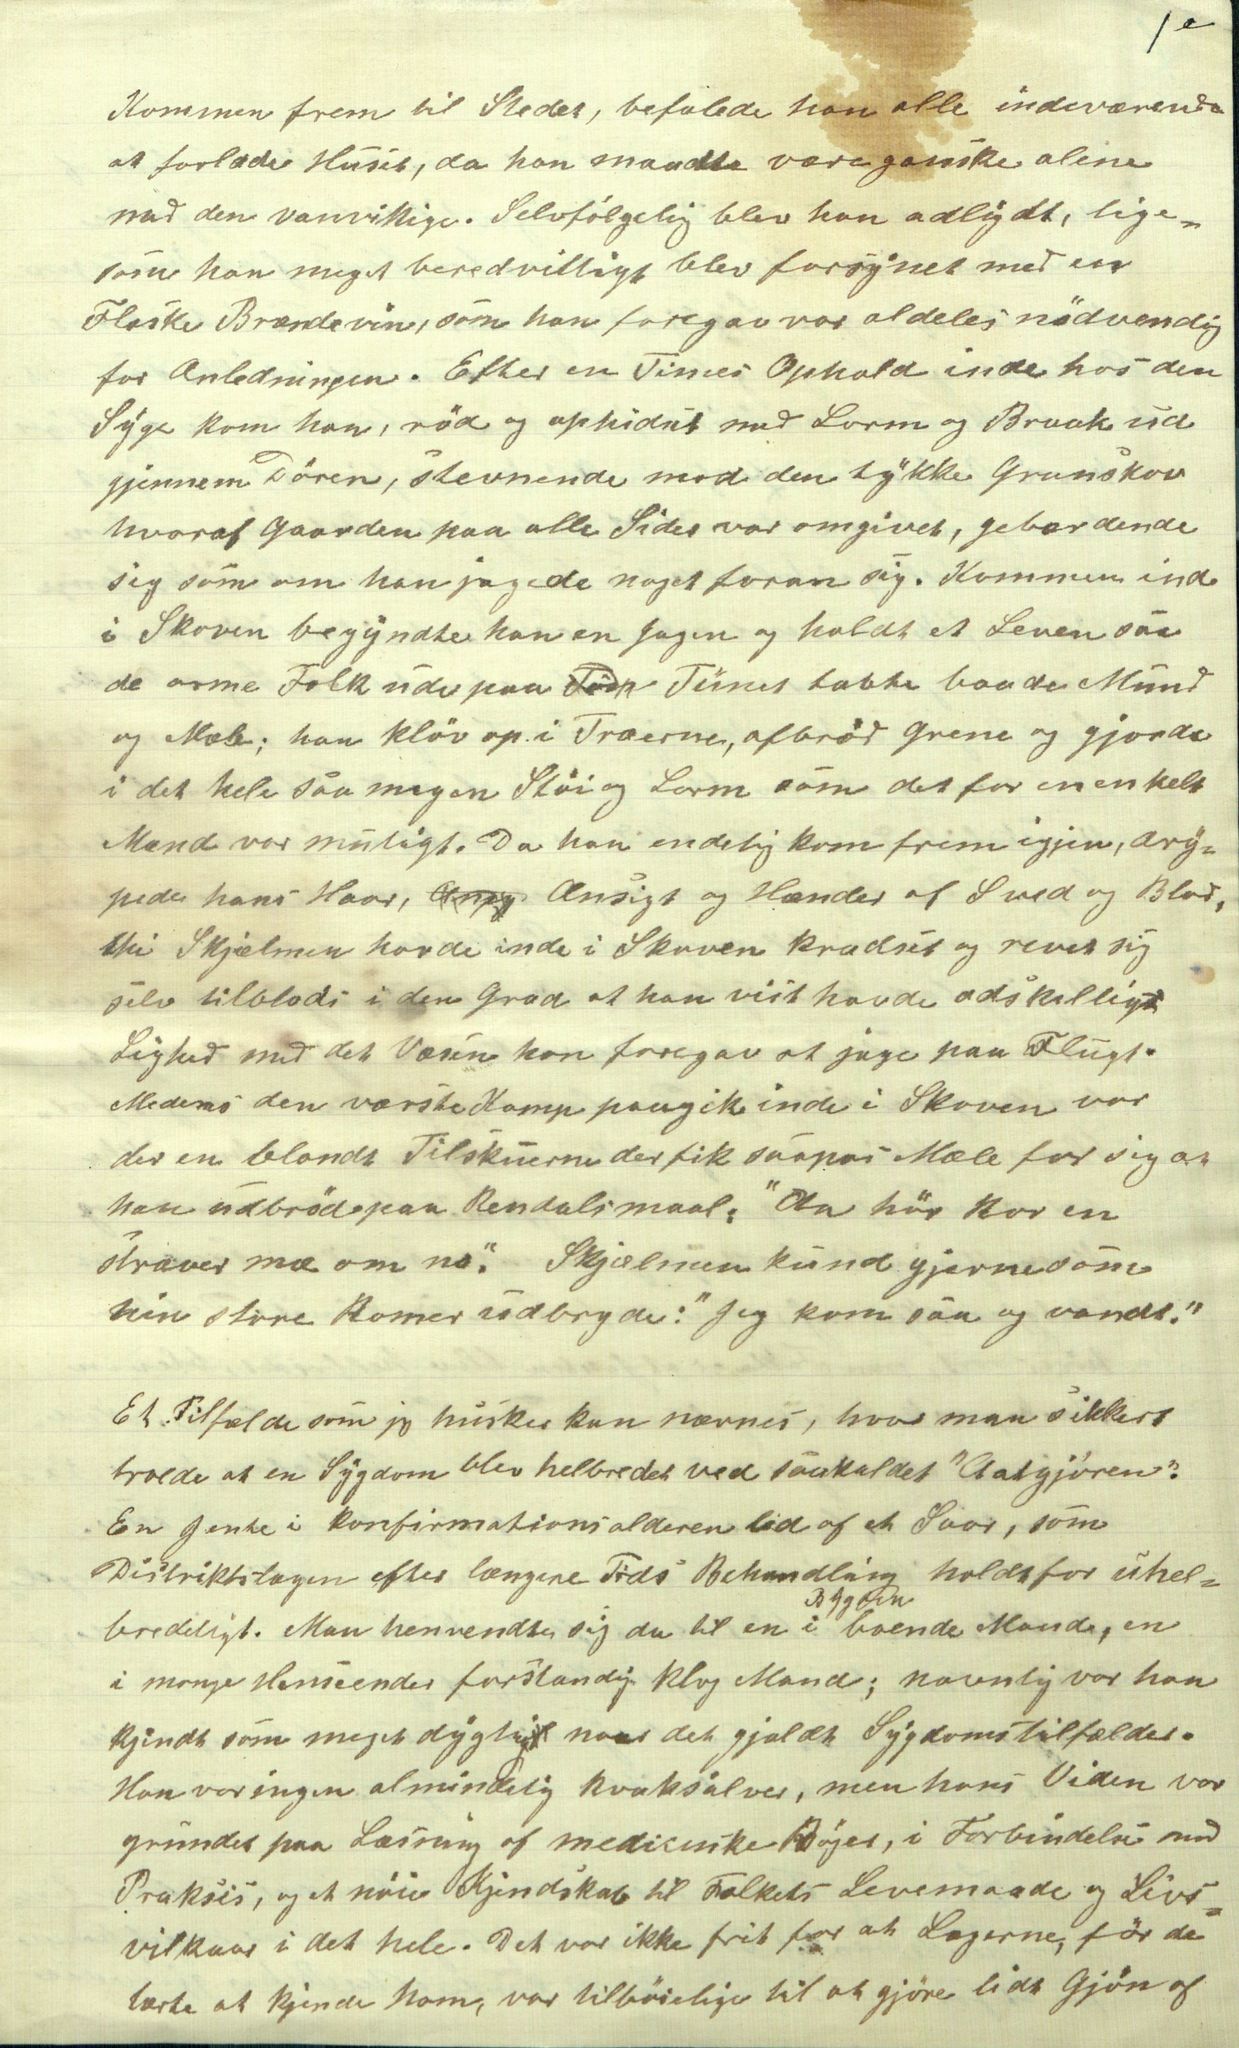 1 e
Kommen frem til Stedet, befalede han alle indeværende
at forlade Huset, da han maatte være ganske alene
med den vanvittige. Selvfölgelig blev han adlydt, lige=
som han meget beredvilligt blev forsynet med en
Flaske Brændevin, som han foregav var aldeles nödvendig
for Anledningen. Efter en Times Ophold inde hos den
Syge kom han, röd og ophidset med Larm og Braak ud
gjennem Dören, stevnende mod den tykke Granskov
hvoraf Gaarden paa alle Sider var omgivet, gebærdende
sig som om han jagede noget foran sig. Kommen ind
i Skoven begyndte han en Jagen og holdt et Leven saa
de arme Folk ude paa Tunet tabte baade Mund
og Mæle; han klöv op i Træerne, afbröd Grene og gjorde
i det hele saa megen Stöi og Larm som det for en enkelt
Mand var muligt. Da han endelig kom frem igjen, dry=
pede hans Haar, Ansigt og Hænder af Sved og Blod,
thi Skjælmen havde inde i Skoven kradset og revet sig
selv tilblods i den Grad at han vist havde adskilligt
Lighed med det Væsen han foregav at jage paa Flugt.
Medens den værste Kamp paagik inde i Skoven var
der en blandt Tilskuerne der fik saapas Mæle for sig at
han udbröd paa Rendalsmaal: "Aa hör kor en
stræver mæ om no". Skjælmen kund gjerne som
hin store Romer udbryde: "Jeg kom saa og vandt."
Et Tilfælde som jeg husker kan nævnes, hvor man sikkert
troede at en Sygdom blev helbredet ved saakaldet "Aatgjören".
En Jente i Konfirmationsalderen led af et Saar, som
Distriktslægen efter længere Tids Behandling holdt for uhel=
bredeligt. Man henvendte sig da til en i Bygden boende Mand, en
i mange Henseender forstandig klog Mand; navnlig var han
kjendt som meget dygtig naar det gjaldt Sygdomstilfælder.
Han var ingen almindelig Kvaksalver, men hans Viden var
grundet paa Læsning af medicinske Böger, i Forbindelse med
Praksis, og et nöie Kjendskab til Folkets Levemaade og Livs=
vilkaar i det hele. Det var ikke frit for at Lægerne, för de
lærte at kjende ham, var tilböielige til at gjöre lidt Gjön af